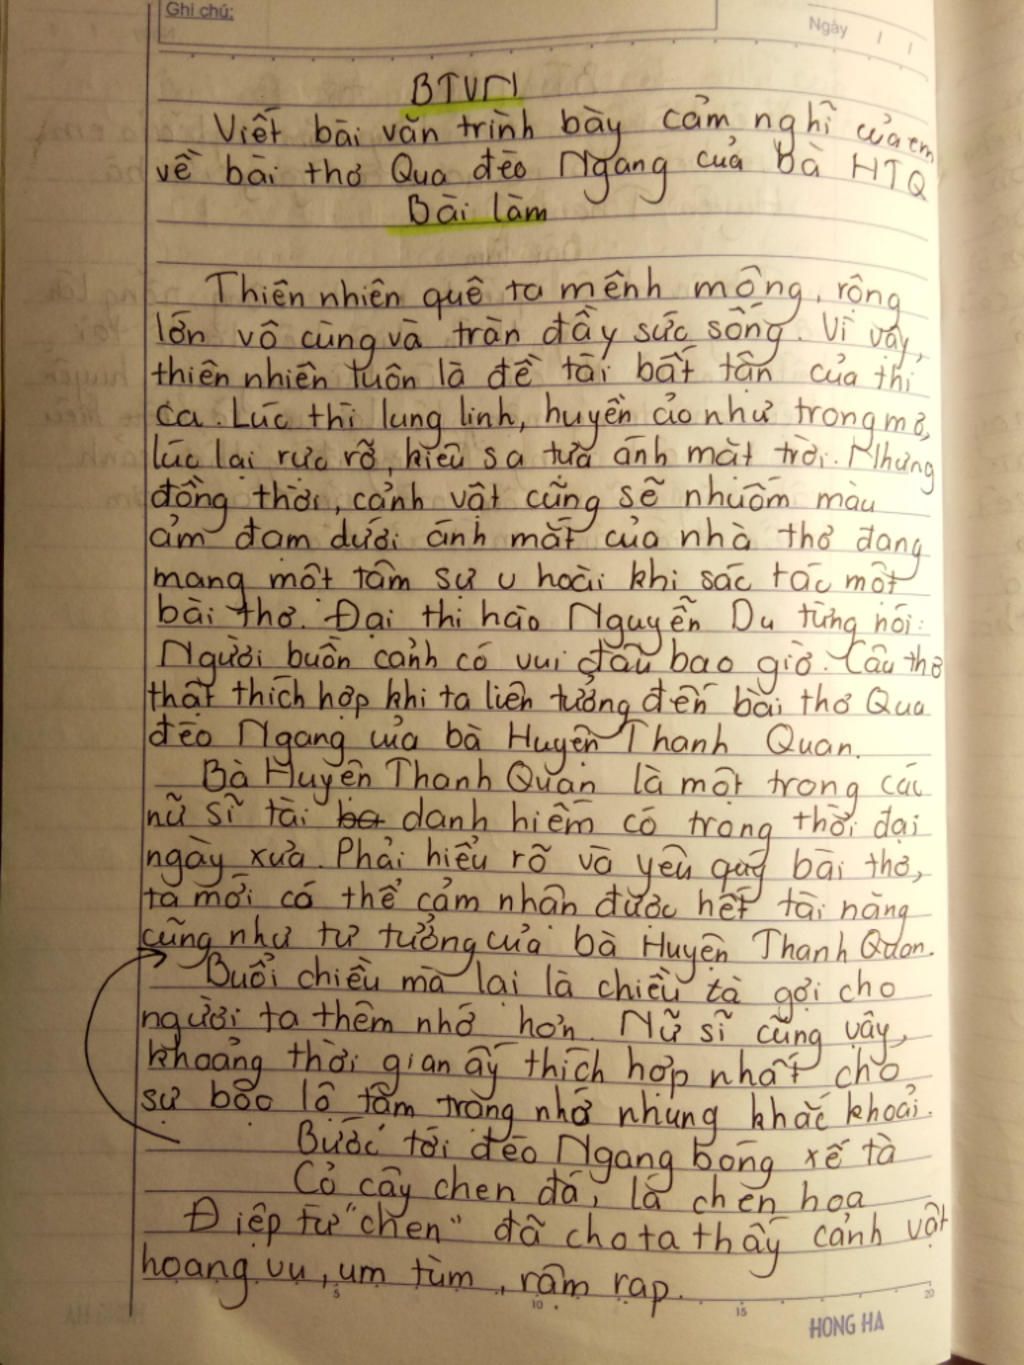 Ghi chú:
Ngày
BTVN
Viết bài văn trình bày cảm nghĩ của em
về bài thơ Qua đèo Ngang của bà HTQ
Bài làm
Thiên nhiên quê ta mênh mông, rộng
lớn vô cùng và tràn đầy sức sống. Vì vậy,
thiên nhiên luôn là đề tài bất tận của thi
ca. Lúc thì lung linh, huyền ảo như trong mơ,
lúc lại rực rỡ, kiêu sa tựa ánh mặt trời. Nhưng
đồng thời, cảnh vật cũng sẽ nhuốm màu
ảm đạm dưới ánh mắt của nhà thơ đang
mang một tâm sự u hoài khi sác tác một
bài thơ. Đại thi hào Nguyễn Du từng nói:
Người buồn cảnh có vui đâu bao giờ. Câu thơ
thật thích hợp khi ta liên tưởng đến bài thơ Qua
đèo Ngang của bà Huyện Thanh Quan.
Bà Huyện Thanh Quan là một trong các
nữ sĩ tài ba danh hiếm có trong thời đại
ngày xưa. Phải hiểu rõ và yêu quý bài thơ,
ta mới có thể cảm nhận được hết tài năng
cũng như tư tưởng của bà Huyện Thanh Quan.
Buổi chiều mà lại là chiều tà gợi cho
người ta thêm nhớ hơn. Nữ sĩ cũng vậy,
khoảng thời gian ấy thích hợp nhất cho
sự bộc lộ tâm trạng nhớ nhung khắc khoải.
Bước tới đèo Ngang bóng xế tà
Cỏ cây chen đá, lá chen hoa
Điệp từ "chen" đã cho ta thấy cảnh vật
hoang vu, um tùm, rậm rạp.
5 10 15 20
HONG HA